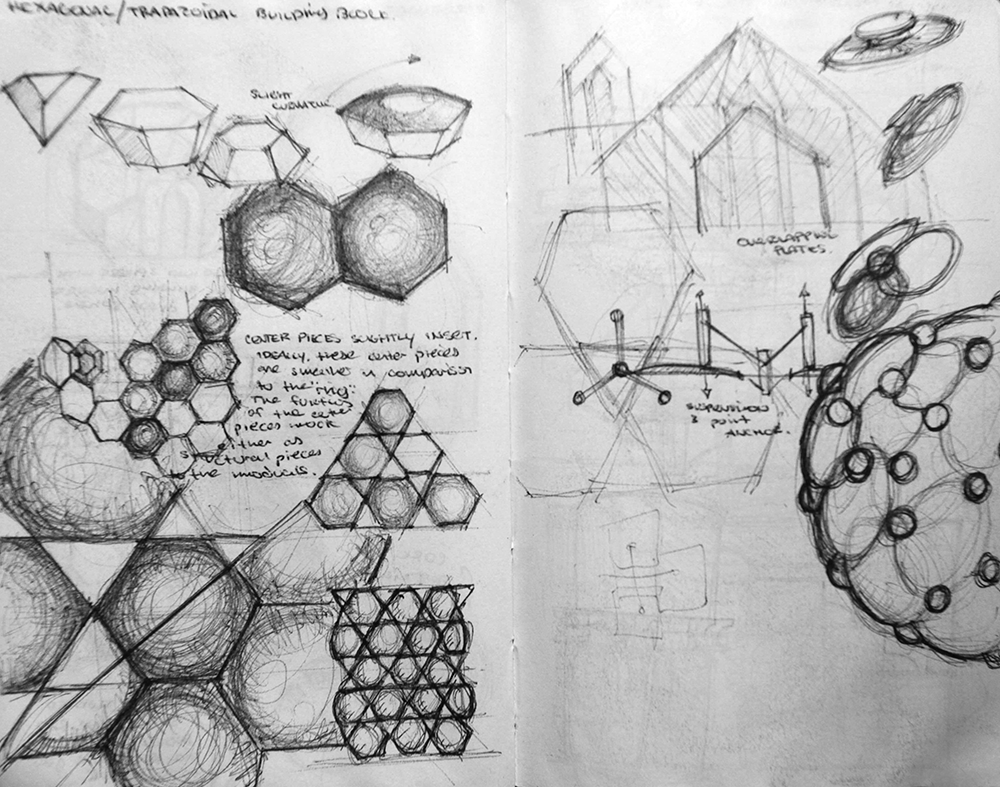 HEXAGONAL/TRAPAZOIDAL BUILDING BLOCK.
SLIGHT
CURVATURE
CENTER PIECES SLIGHTLY INSERT.
IDEALLY, these center pieces
are smaller in comparison
to the "ring".
The
of the center
pieces work
either as
structural pieces
to the moduals.
OVERLAPPING
PLATES.
SUSPENSION
3 point
ANCHOR.